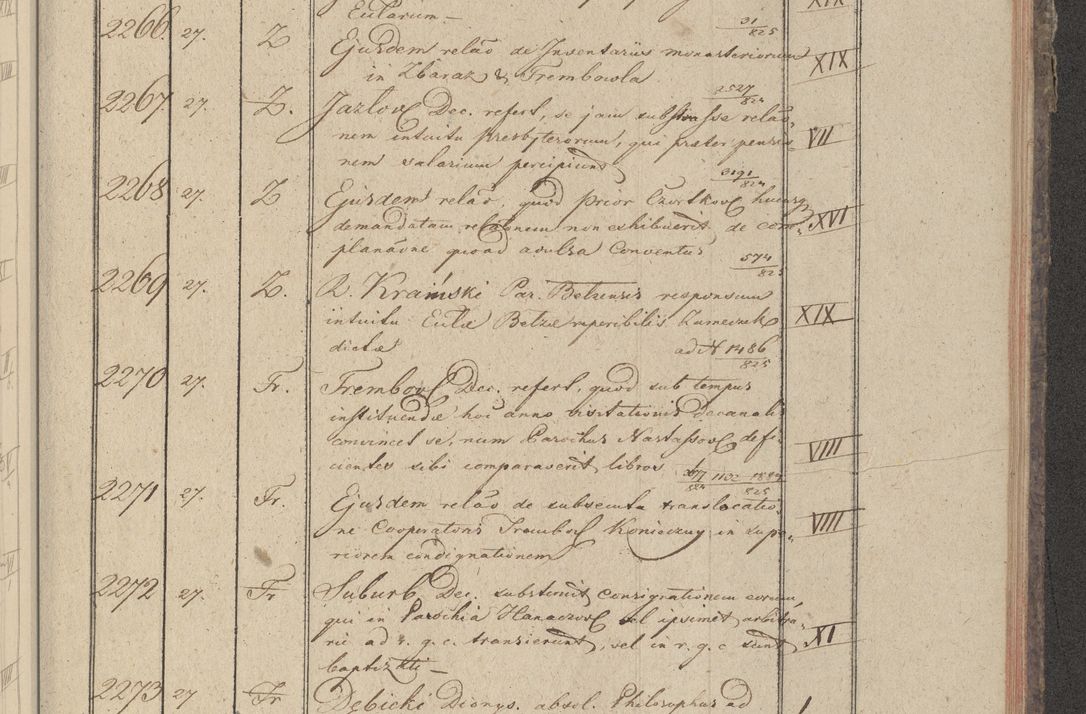 Eccl[...]arum — 31/825 XIX
2266. 27. Z Ejusdem relaõ de Inventariis monasteriorum XIX
in Zbaraz & Trembowla
2527/824
2267 27. Z. Jazlov Dec. refert, se jam substravisse relaõ-
nem intuitu presbyterorum, qui præter pensio- VII
nem salarium percipiunt
3191/824
2268 27. Z Ejusdem relaõ, quod Prior Czortkov hucusq
demandatam relationem non exhibuerit de com- XVI
planaõne quoad avulsa Conventus
574/825
2269 27. Z. R. Kramski Par. Betzensis responsum
intuitu Eccliæ Betzæ reperibilis Zameczek XIX
dictæ ad N 1486/825
2270 27. Tr. Trembovl Dec. refert, quod sub tempus
instituendæ hoc anno visitationis decanalis
convincet se, num Parochus Nastassov defi- VIII
cientes sibi comparaverit libros
1132 825
2271 27. Tr. Ejusdem relaõ de subsecuta translocatio-
ne Cooperatoris Trembovl Konieczny in supe- VIIII
riorem condignationem
2272 27. Tr Suburb Dec. substernit consignationem eorum,
qui in Parochia Hanaczov vel ipsimet arbitra-
rie ad r. g. c. transierunt, vel in r. g. c sunt XI
baptizati —
2273 27 Tr Dębicki Dionys. absol. Philosophus ad